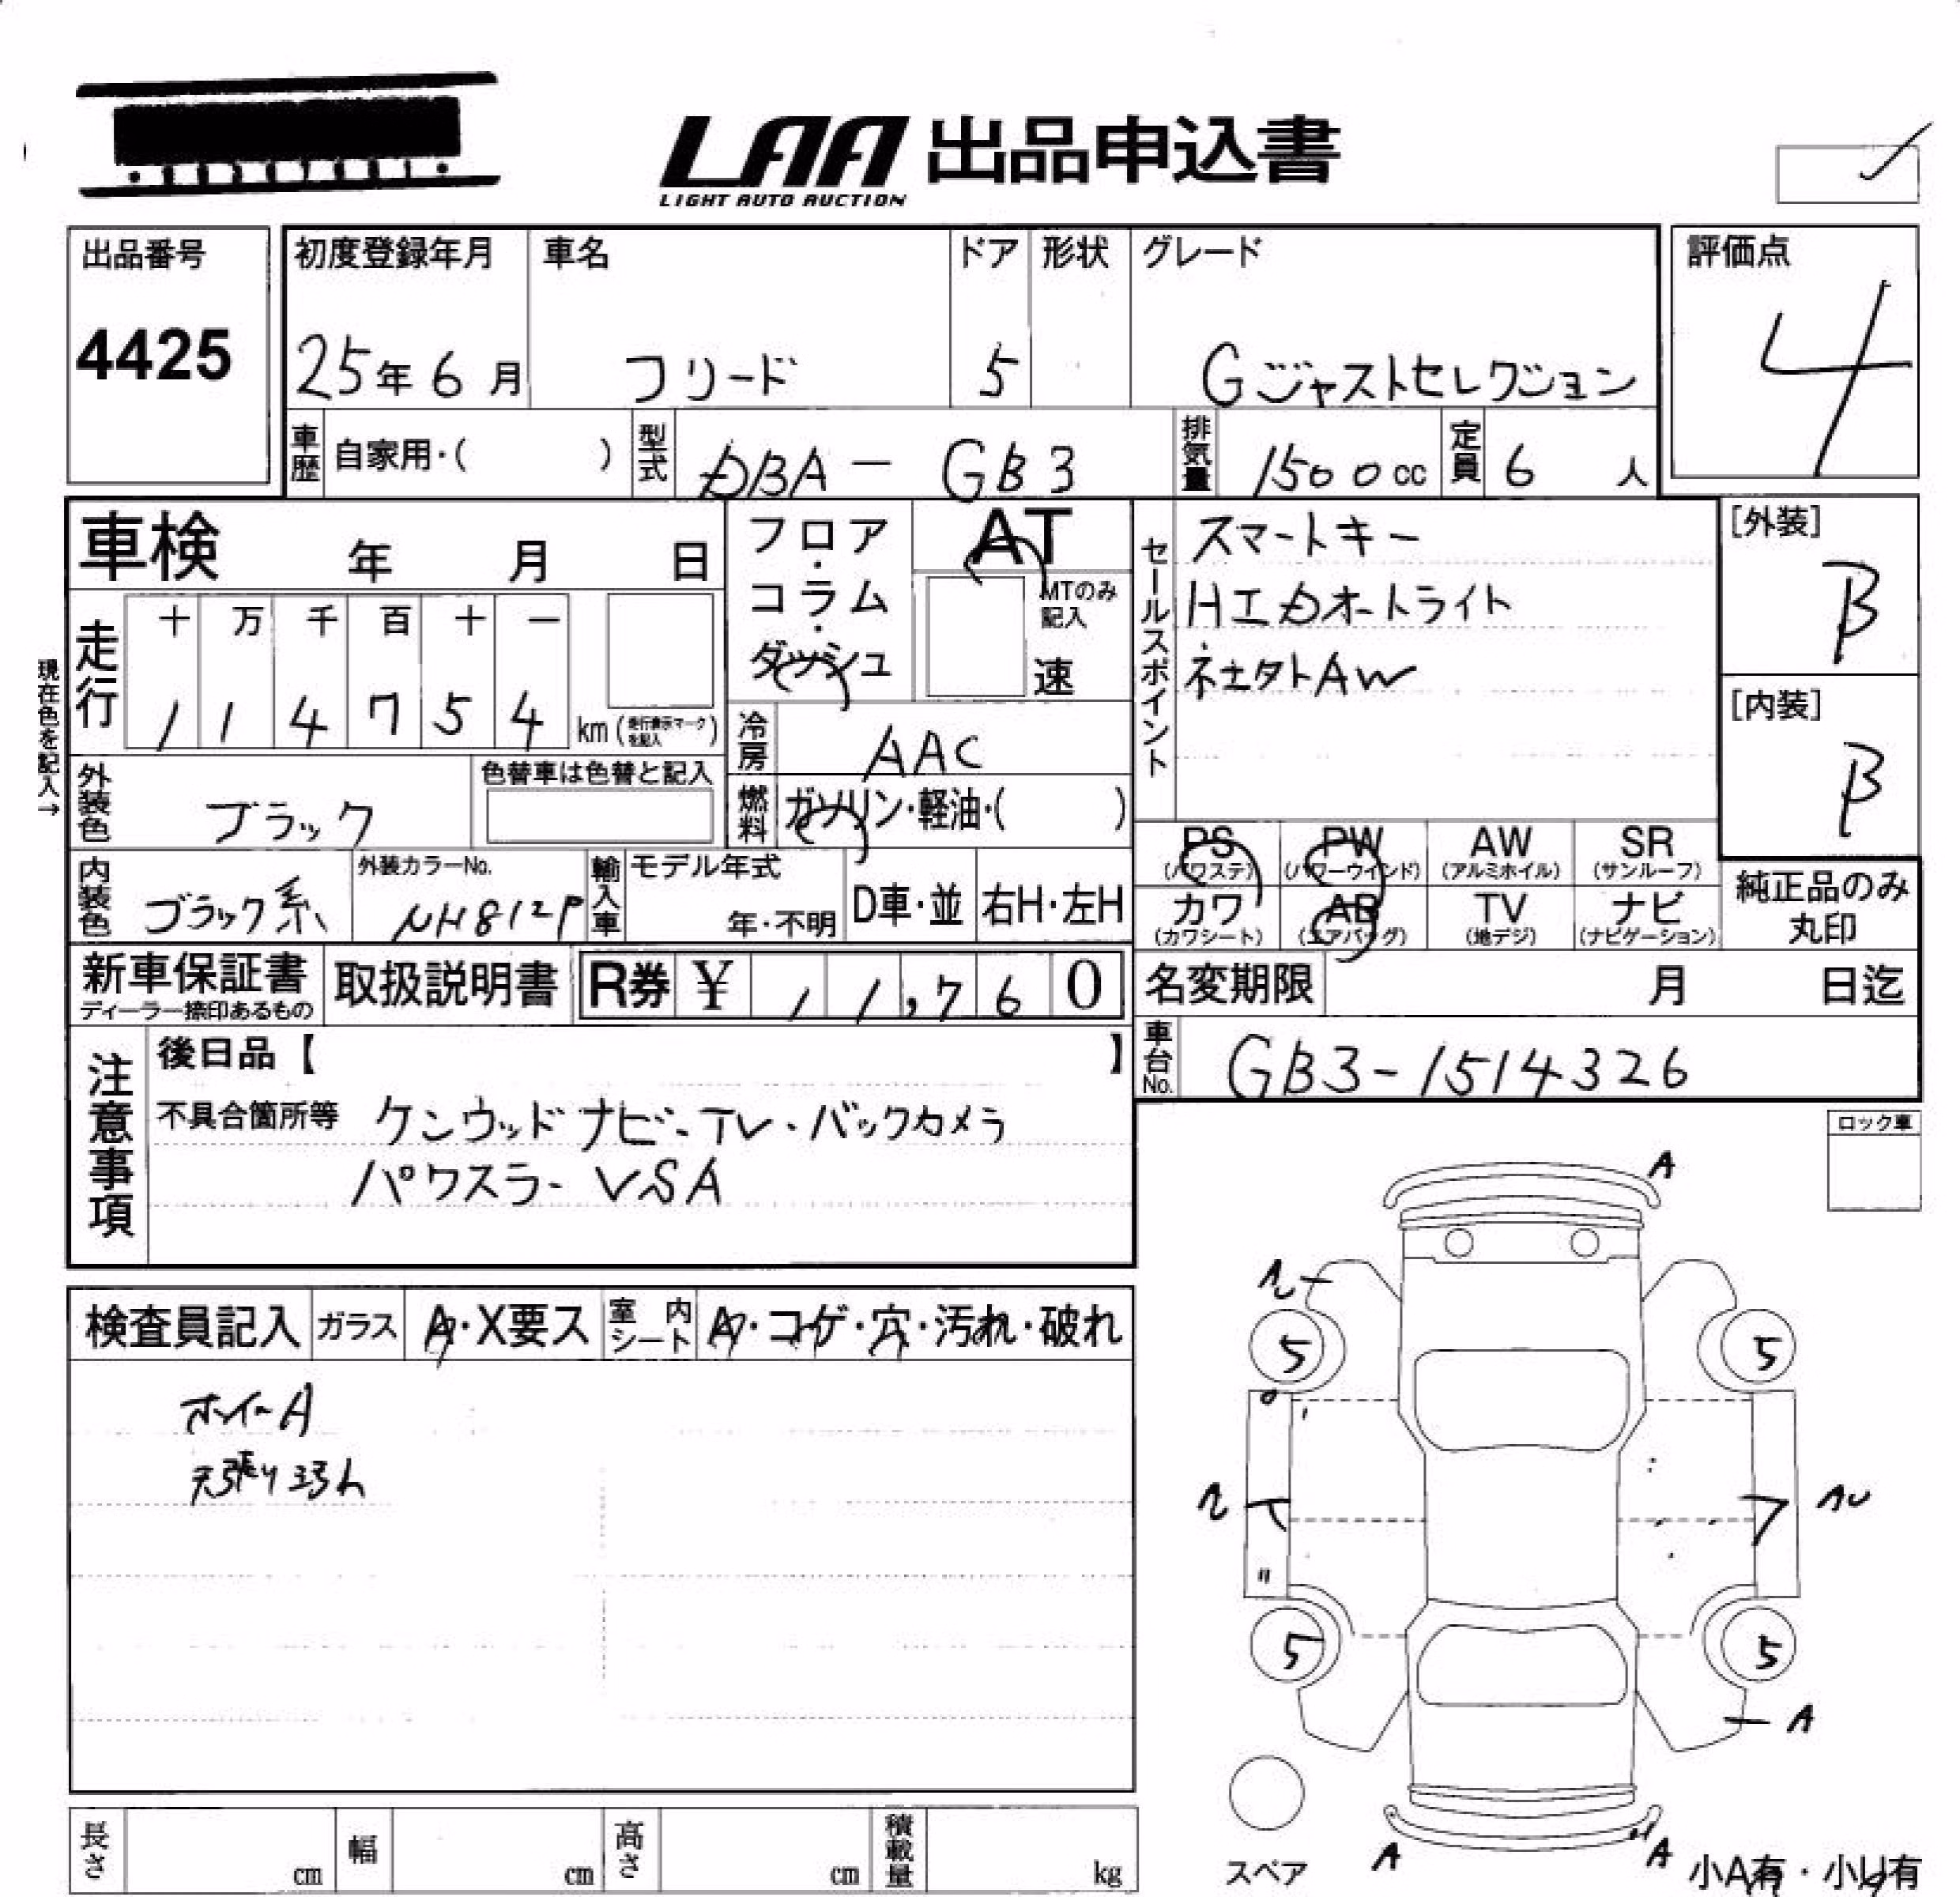 LAA 出品申込書
LIGHT AUTO AUCTION
出品番号
4425
初度登録年月
25年 6月
車名
フリード
ドア
5
形状
グレード
Gジャストセレクション
評価点
4
車歴 自家用・( )
型式 DBA - GB3
排気量 1500cc
定員 6人
車検 年 月 日
走行 十 万 千 百 十 一
1 1 4 7 5 4 km (走行表示マークを記入)
現在色を記入→
外装色 ブラック
色替車は色替と記入
内装色 ブラック系
外装カラーNo.
NH812P
フロア・コラム・ダッシュ
AT
MTのみ記入
速
冷房 AAC
燃料 ガソリン・軽油・( )
輸入車 モデル年式 年・不明 D車・並 右H・左H
セールスポイント
スマートキー
HIDオートライト
[外装]
B
[内装]
B
PS (パワステ) PW (パワーウインド) AW (アルミホイル) SR (サンルーフ)
カワ (カワシート) AB (エアバッグ) TV (地デジ) ナビ (ナビゲーション)
純正品のみ丸印
新車保証書
ディーラー捺印あるもの
取扱説明書
R券 ¥ 11,760
名変期限 月 日迄
車台No. GB3-1514326
注意事項
後日品【 】
不具合箇所等 ケンウッドナビ・TV・バックカメラ
パワスラ- VSA
ロック車
検査員記入 ガラス A・X要ス 室内シート A・コゲ・穴・汚れ・破れ
ホイールA
A
5 5
AU
5 5
A
A A
スペア
小A有・小U有
長さ cm 幅 cm 高さ cm 積載量 kg